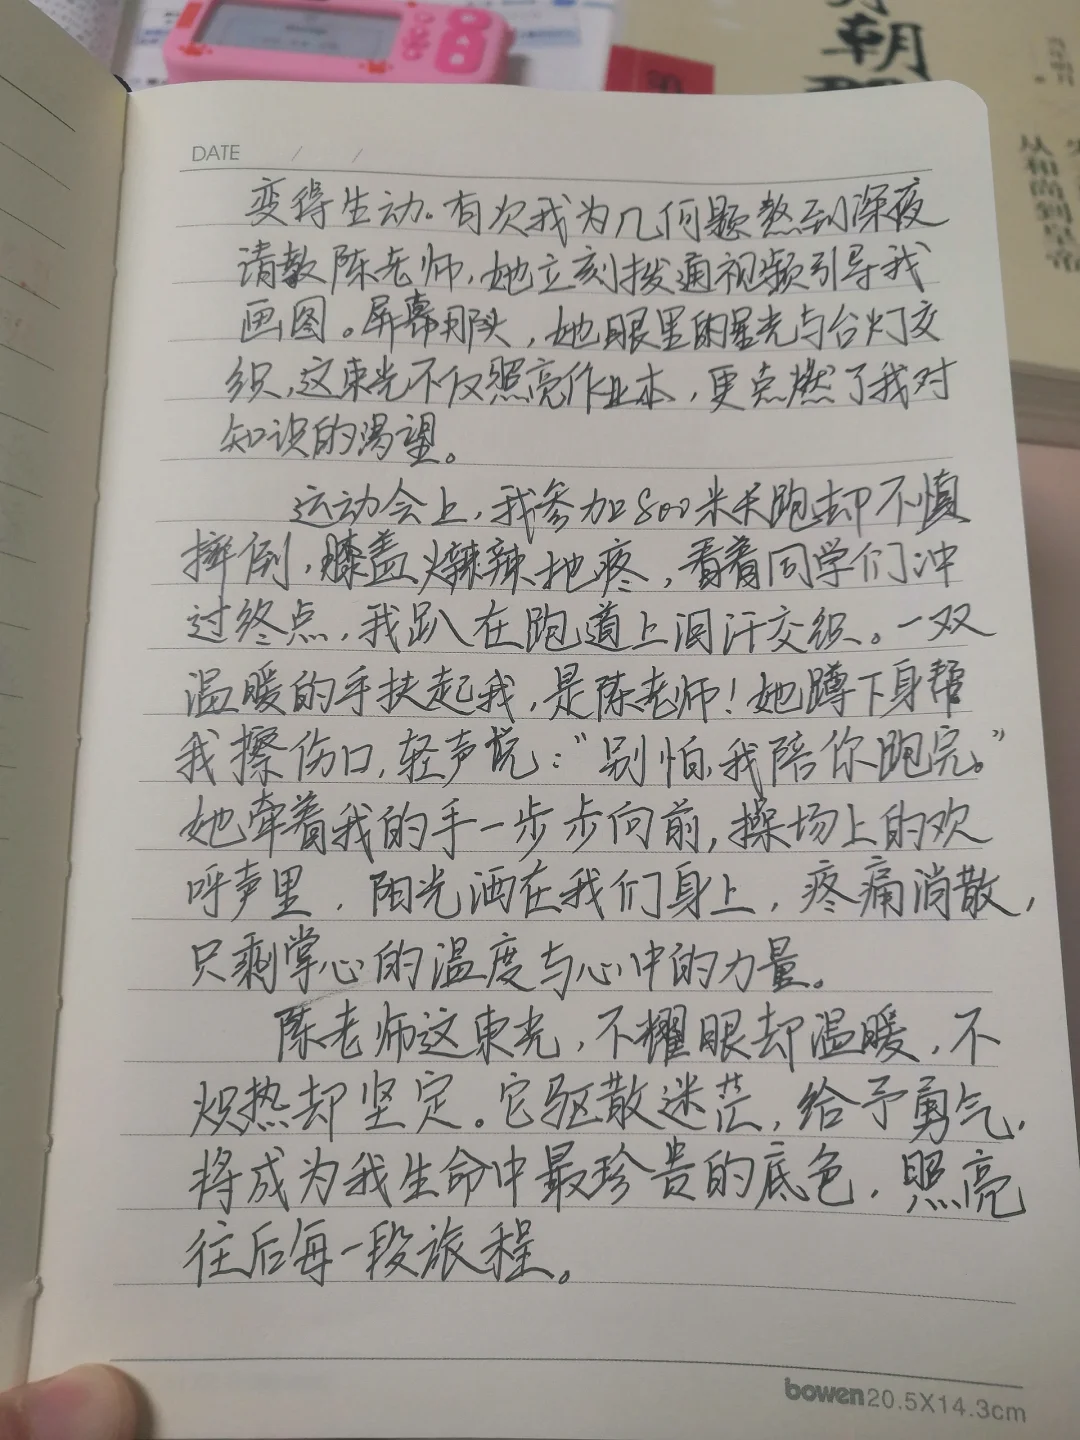 朝
从和尚到皇帝
DATE / /
变得生动。有次我为几何题熬到深夜
请教陈老师,她立刻拨通视频引导我
画图。屏幕那头,她眼里的星光与台灯交
织,这束光不仅照亮作业本,更点燃了我对
知识的渴望。
运动会上,我参加800米长跑却不慎
摔倒,膝盖火辣辣地疼,看着同学们冲
过终点,我趴在跑道上泪汗交织。一双
温暖的手扶起我,是陈老师!她蹲下身帮
我擦伤口,轻声说:“别怕,我陪你跑完。”
她牵着我的手一步步向前,操场上的欢
呼声里,阳光洒在我们身上,疼痛消散,
只剩掌心的温度与心中的力量。
陈老师这束光,不耀眼却温暖,不
炽热却坚定。它驱散迷茫,给予勇气,
将成为我生命中最珍贵的底色,照亮
往后每一段旅程。
bowen 20.5X14.3cm